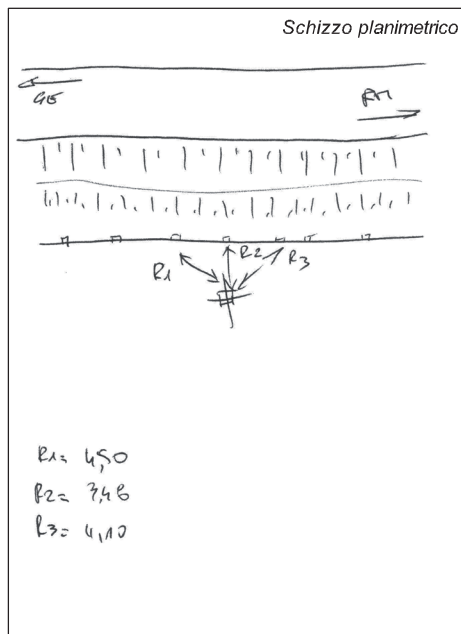 Schizzo planimetrico
GE
RM
R1
R2
R3
R1= 4,50
R2= 3,46
R3= 4,10